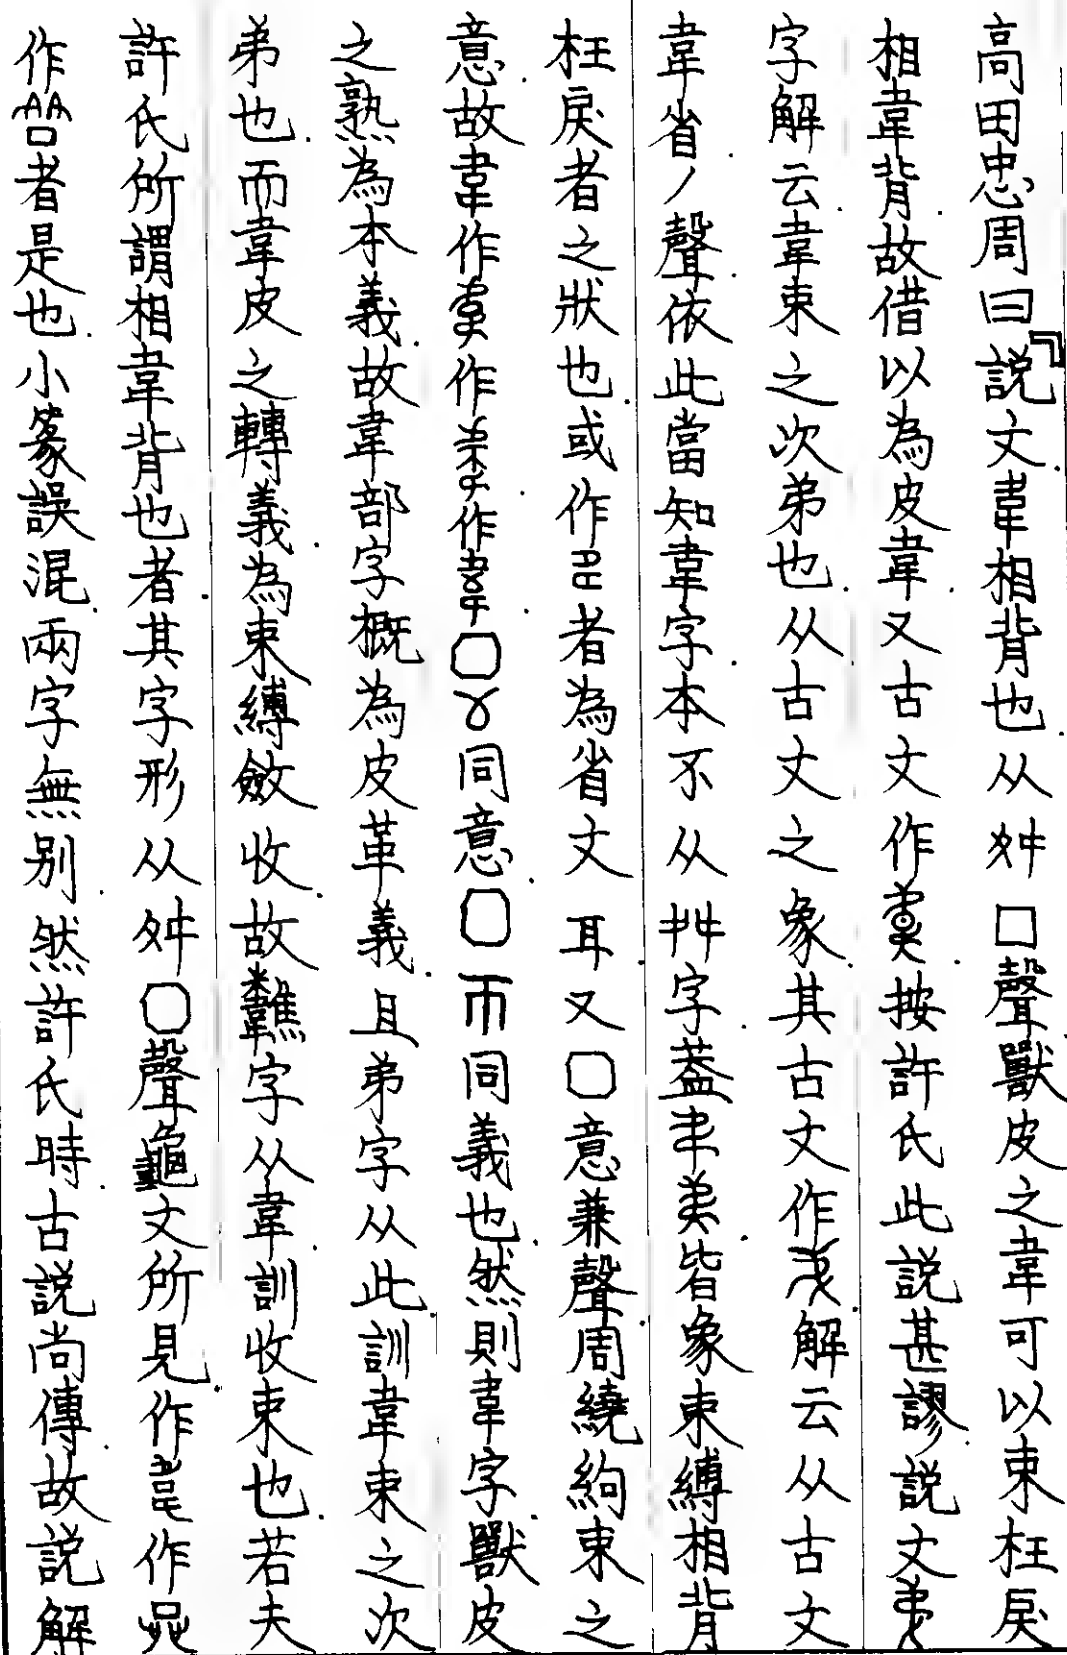 高田忠周曰『説文.韋相背也.从舛囗聲獸皮之韋可以束枉戾
相韋背.故借以為皮韋.又古文作.按許氏此説甚謬.説文
字解云韋束之次弟也.从古文之象.其古文作.解云从古文
韋省.丿聲.依此當知韋字本不从字.葢皆象束縛相背
枉戾者之狀也.或作者為省文耳.又囗意兼聲.周繞絇束之
意.故韋作作.作.囗同意.囗同義也.然則韋字獸皮
之熟為本義.故韋部字概為皮革義.且弟字从此.訓韋束之次
弟也.而韋皮之轉義.為束縛斂收.故䪌字从韋.訓收束也.若夫
許氏所謂相韋背也者.其字形从舛囗聲.龜文所見.作作
作者是也.小篆誤混.兩字無別.然許氏時.古説尚傳.故説解